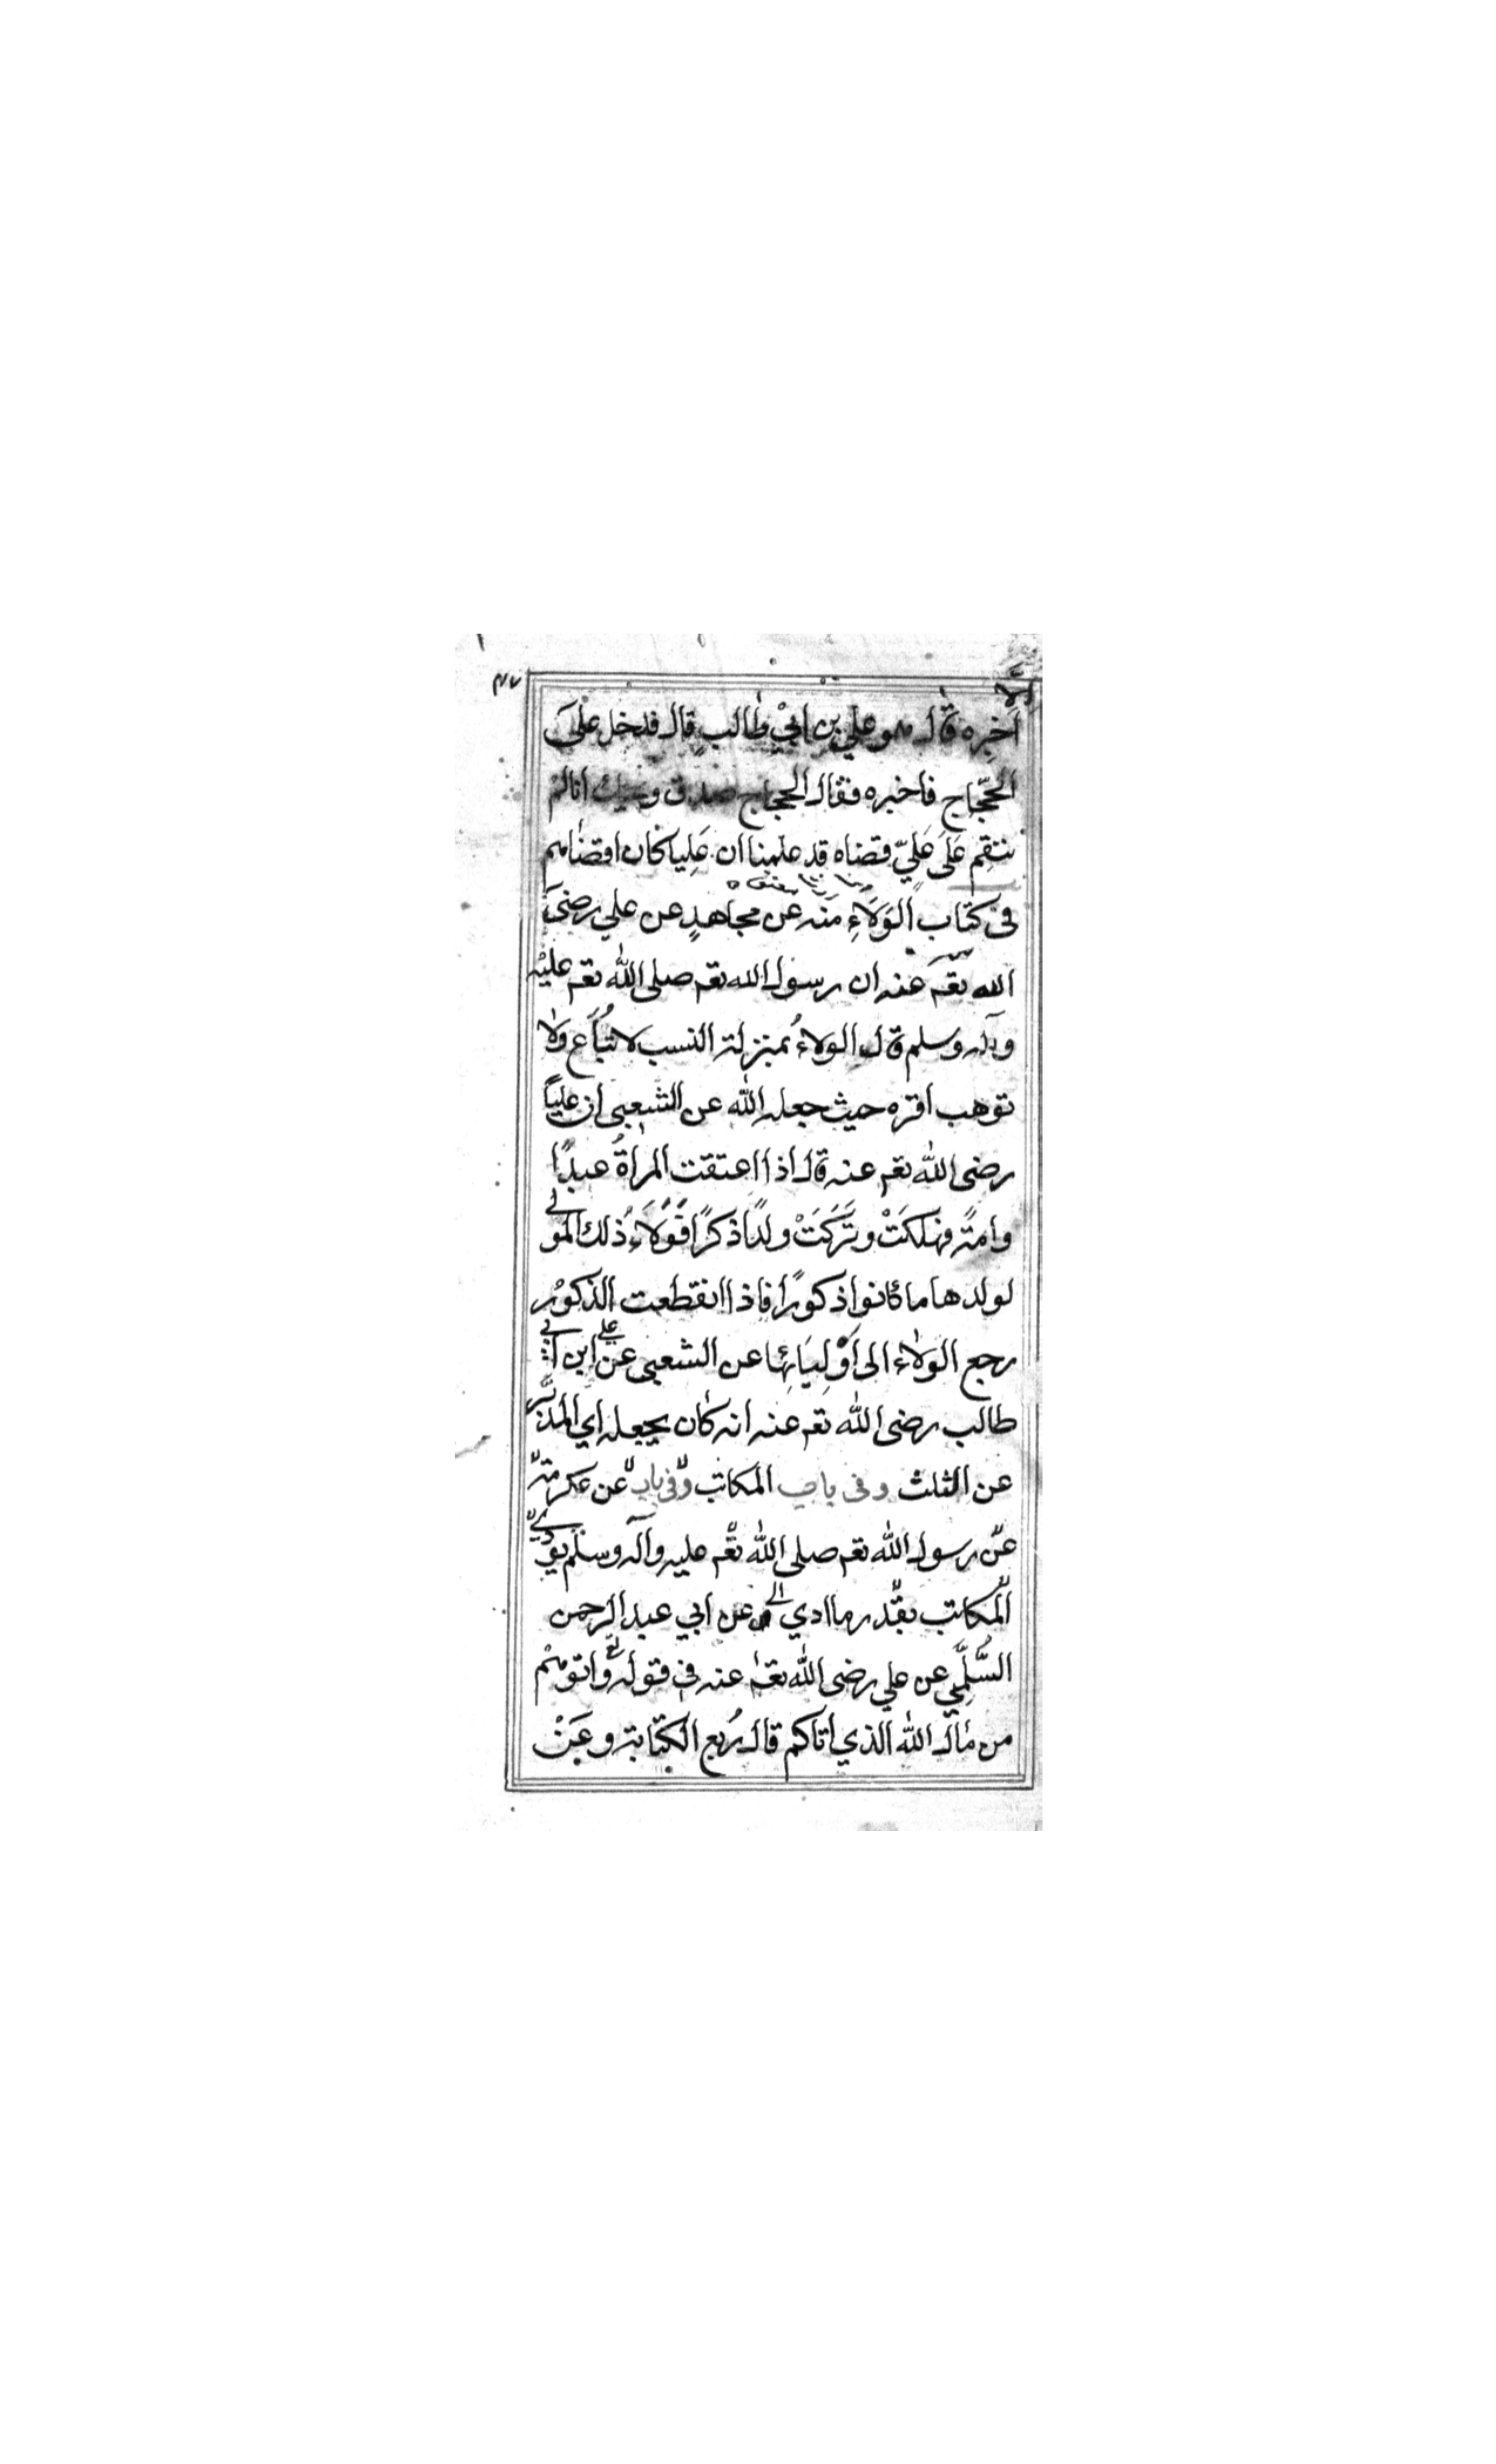 ٣٧
اخبره قال هو علي بن ابي طالب قال فدخل على
الحجّاج فاخبره فقال الحجاج صدق ويحك انا لم
ننقم على عليّ قضاه قد علمنا ان عليا كان اقضاهم
في كتاب الوَلَاءِ منه عن مجاهدٍ عن علي رضى
الله تعم عنه ان رسول الله تعم صلى الله تعم عليه
وآله وسلم قال الولاءُ بمنزلة النسب لا تُبَاع ولا
توهب اقره حيث جعله الله عن الشعبي ان علياً
رضى الله تعم عنه قال اذا اعتقت المراةُ عبدًا
وامةً فهلكَتْ وتَرَكَتْ ولدًا ذكرًا فوَلَاءُ ذلك المولى
لولدها ما كانوا ذكورًا فاذا انقطعت الذكور
رجع الولاء الى اَوْلِيَائِها عن الشعبى عن على ابن ابى
طالب رضى الله تعم عنه انه كان يجعله اي المدبَّر
عن الثلث وفى باب المكاتب وفى باب عن عكرمة
عن رسول الله تعم صلى الله تعم عليه وآله وسلم يودى
المكاتب بقدر ما ادي عن ابي عبد الرحمن
السُّلَمِي عن علي رضى الله تعم عنه في قوله تع واتوهم
من مال الله الذي اتاكم قال رُبع الكتابة وعَنْ